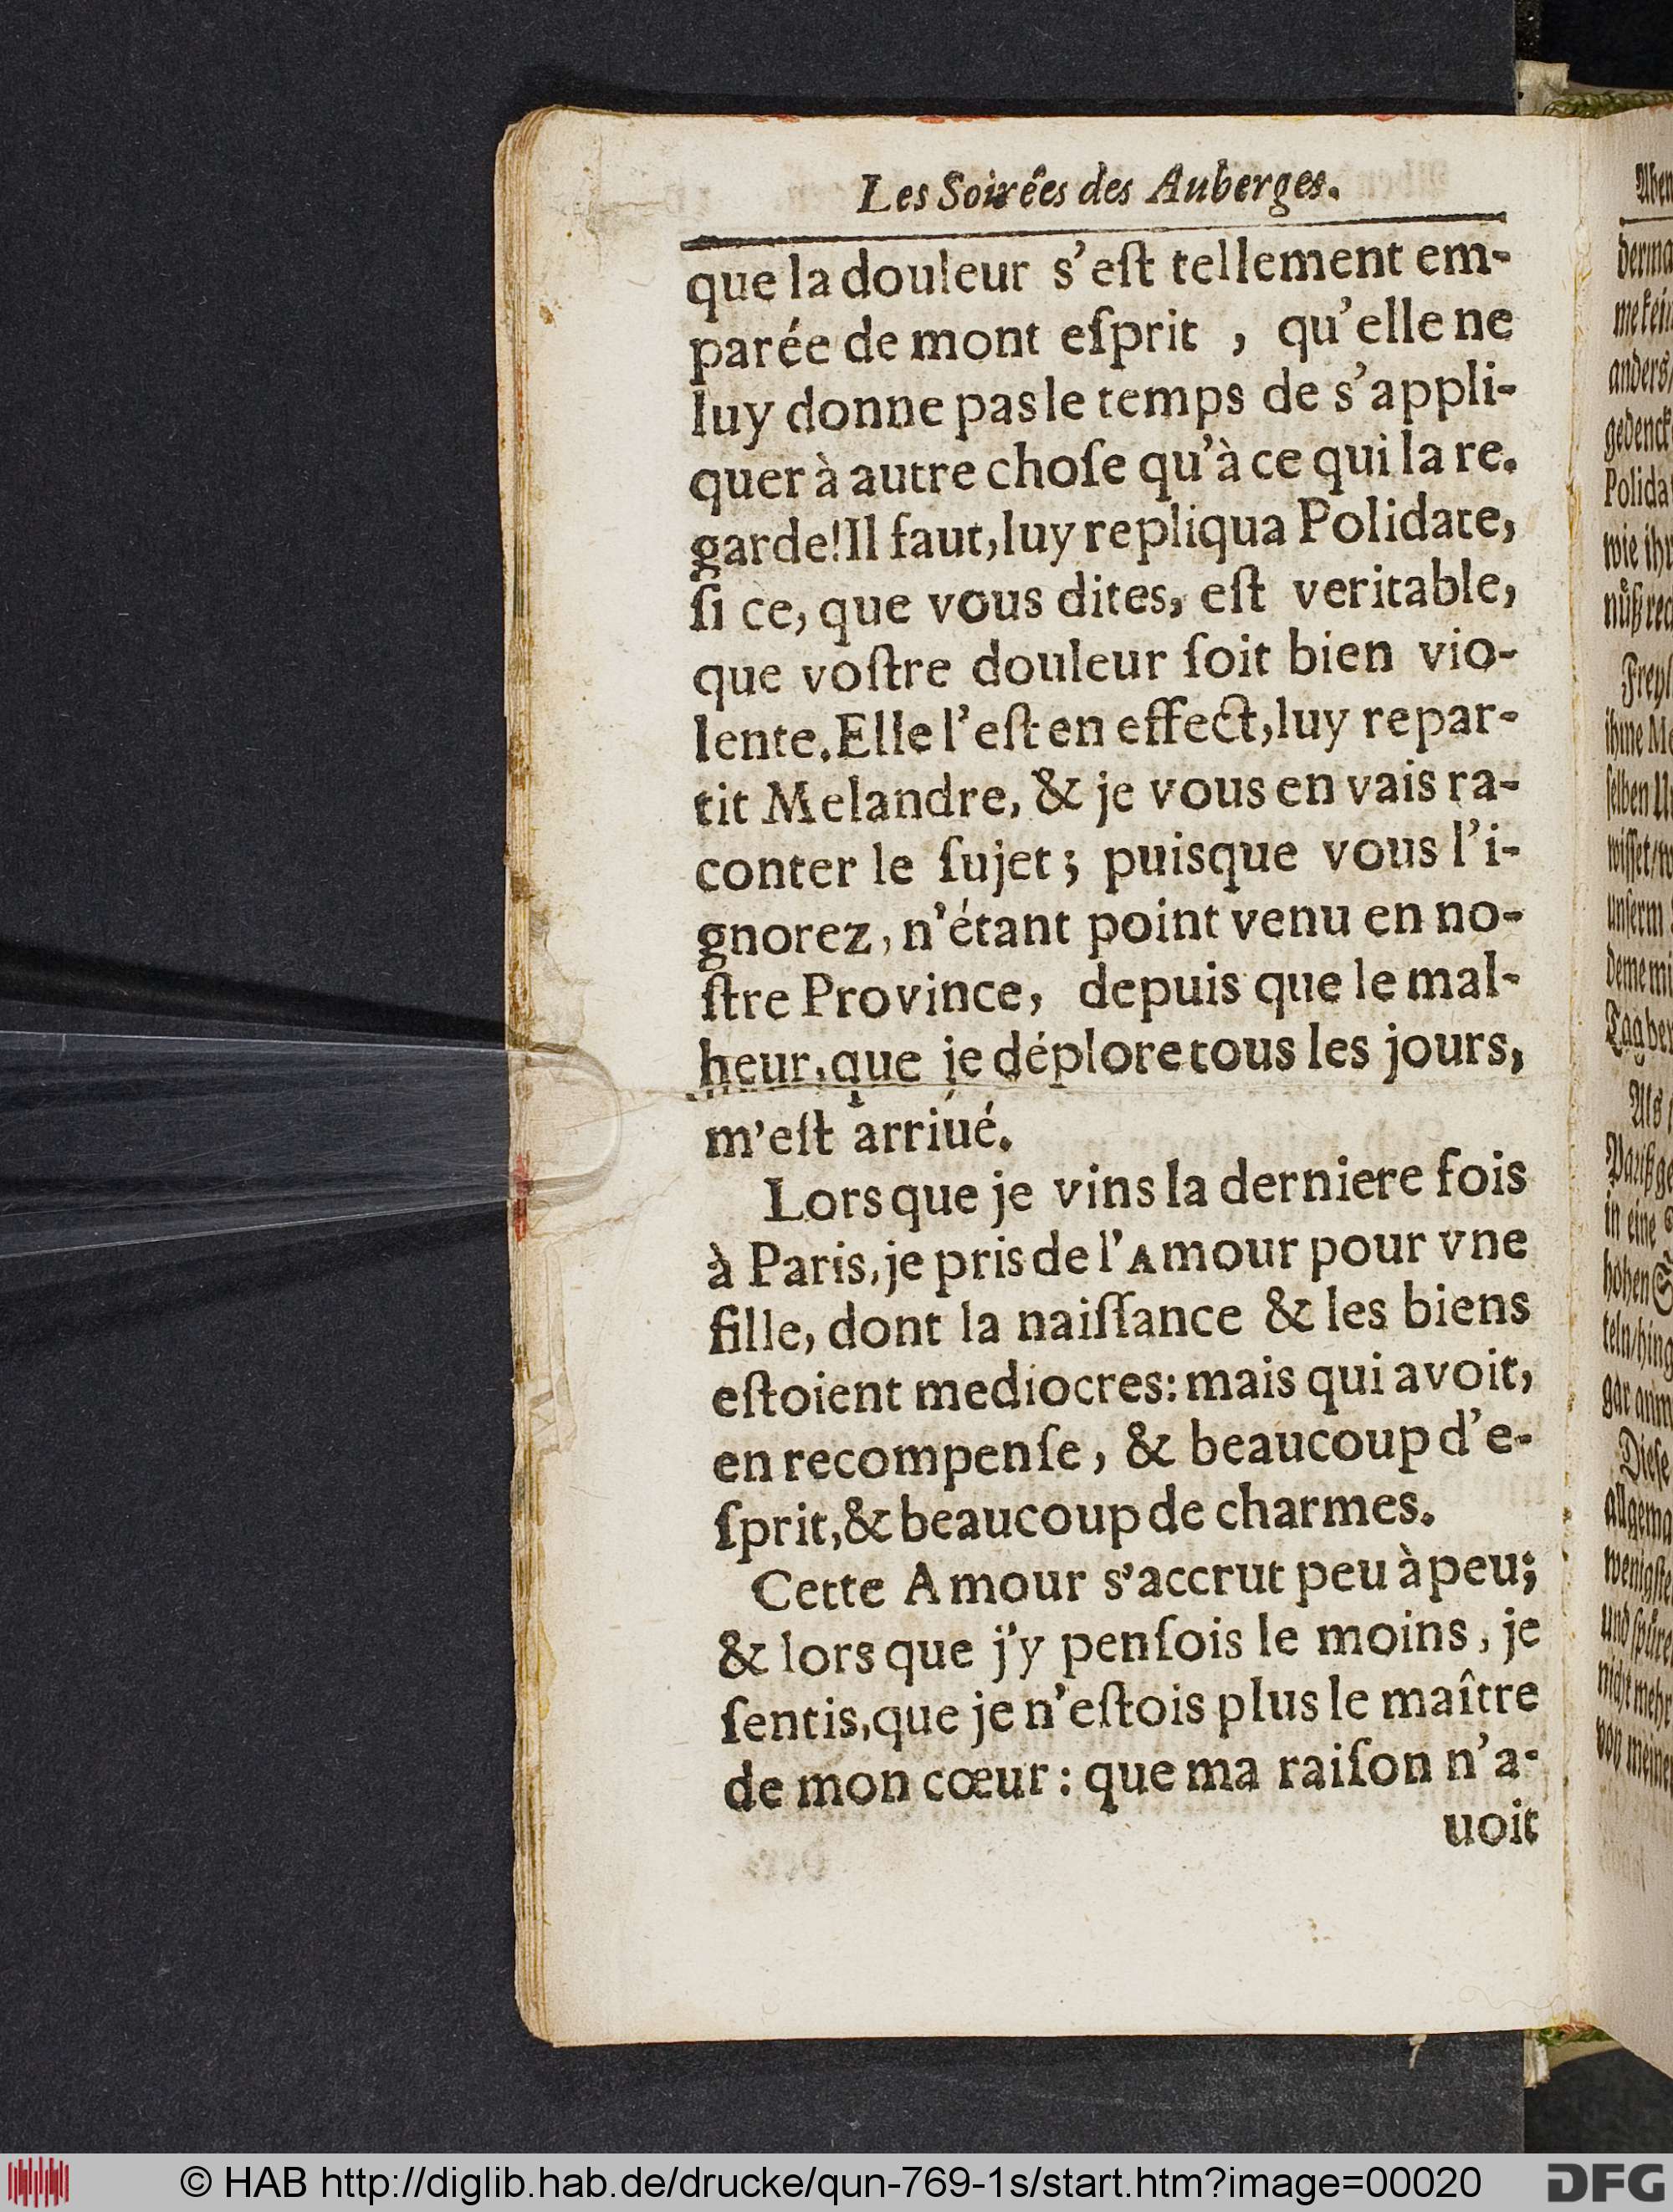 Les Soirêes des Auberges.
que la douleur s'eſt tellement em-
parée de mont eſprit , qu'elle ne
luy donne pas le temps de s'appli-
quer à autre choſe qu'à ce qui la re.
garde! Il faut, luy repliqua Polidate,
ſi ce, que vous dites, eſt veritable,
que voſtre douleur ſoit bien vio-
lente. Elle l'eſt en effect, luy repar-
tit Melandre, & je vous en vais ra-
conter le ſujet; puisque vous l'i-
gnorez, n'étant point venu en no-
ſtre Province, depuis que le mal-
heur, que je déplore tous les jours,
m'eſt arriué.
Lors que je vins la derniere fois
à Paris, je pris de l'Amour pour vne
fille, dont la naiſſance & les biens
eſtoient mediocres: mais qui avoit,
en recompenſe, & beaucoup d'e-
ſprit, & beaucoup de charmes.
Cette Amour s'accrut peu à peu;
& lors que j'y penſois le moins, je
ſentis, que je n'eſtois plus le maître
de mon cœur: que ma raiſon n'a-
uoit
Aben
derma
me kein
anders/
gedenck
Polida
wie ihr
nüß rec
Frey
ihme Me
ſelben U
wiſſet/
unſerm
deme mi
Tag be
Als
Pariß ge
in eine
hohen S
teln/hing
gar anm
Dieſe
allgema
wenigſte
und ſpüre
nicht mehr
von meine
© HAB http://diglib.hab.de/drucke/qun-769-1s/start.htm?image=00020
DFG